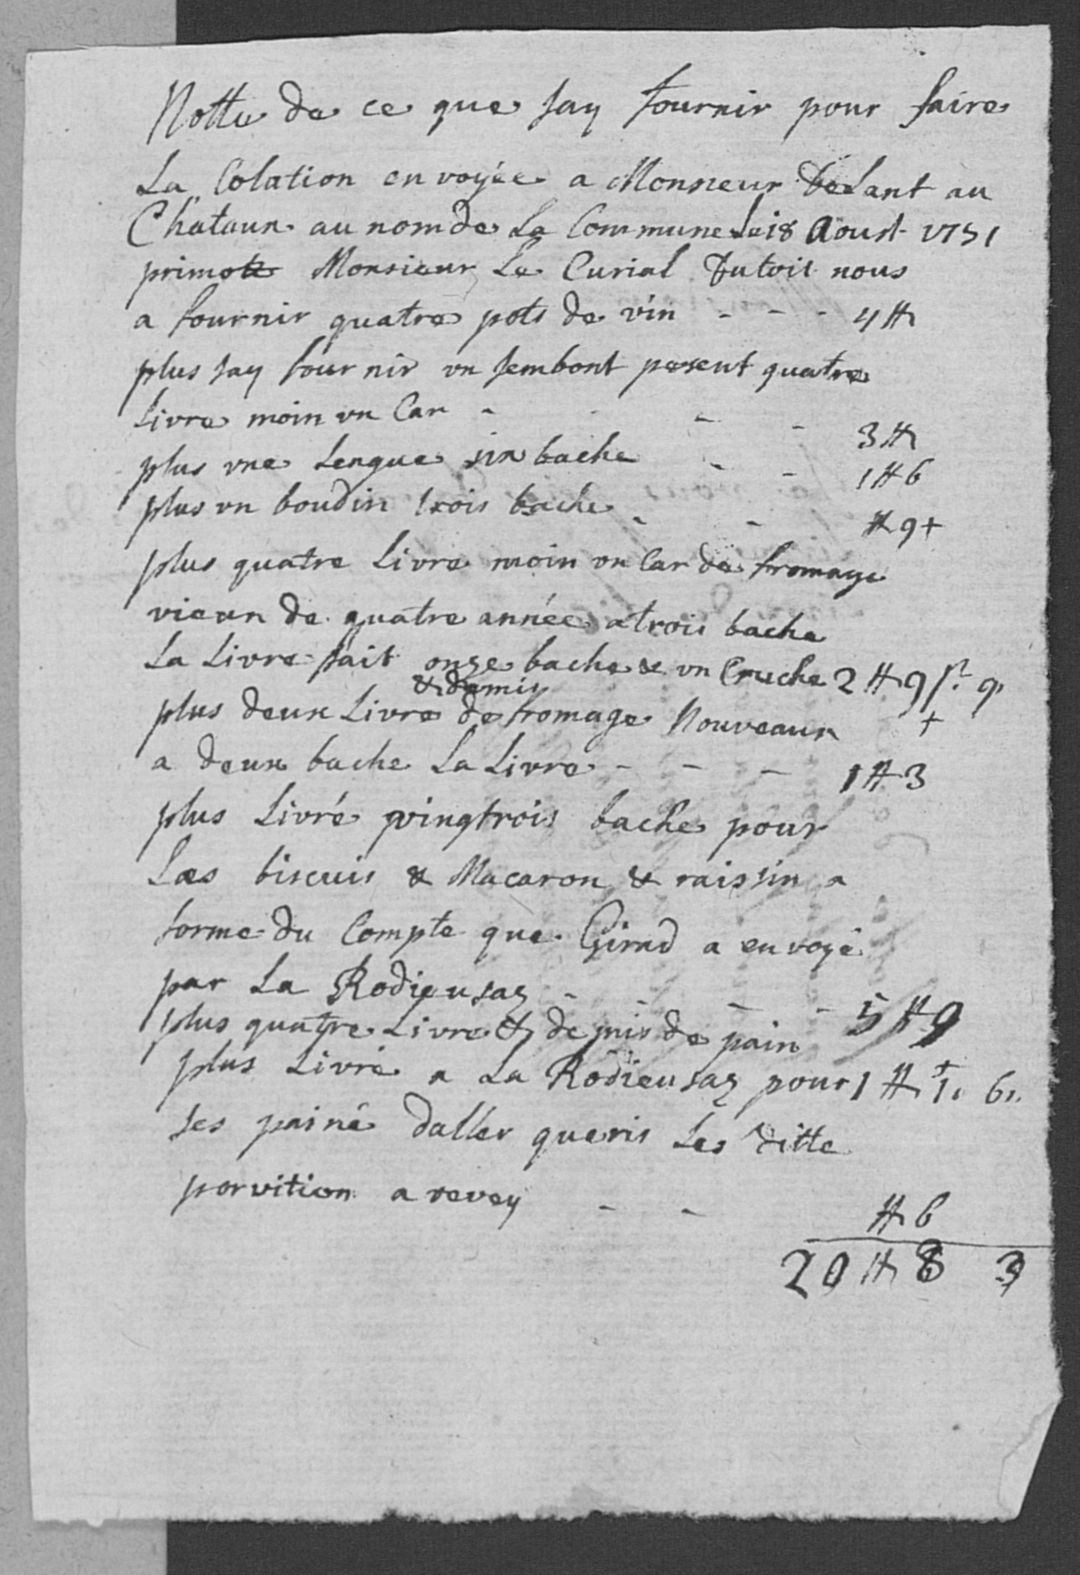 Notte de ce que jay fournir pour faire
La Colation envoyée a Monsieur
Chataux au nom de La Commune Le 18 Aoust 1751
primo Monsieur Le Curial Dutoit nous
a fournir quatre pots de vin - - - 4 ₶
plus jay fournir vn jembont pesent quatre
Livre moin vn Car - - - 3 ₶
plus vne Lengue six bache - - 1 ₶ 6
plus vn boudin trois bache - - ₶ 9 +
plus quatre Livre moin vn Car de fromage
vieux de quatre année a trois bache
La Livre fait onze bache & vn Cruche 2 ₶ 9 s. 9
& demis
plus deux Livre de fromage Nouveaux +
a deux bache La Livre - - - 1 ₶ 3
plus Livré vingtrois bache pour
Les biscuis & Macaron & raissin a
forme du Compte que Girad a envoyé
par La Rodieusaz - - - - 5 ₶ 9
plus quatre Livre & demis de pain
plus Livré a La Rodieusaz pour 1 ₶ 1. 6. +
ses painé daller queris Les ditte
porvition a vevey - - ₶ 6
20 ₶ 8 3